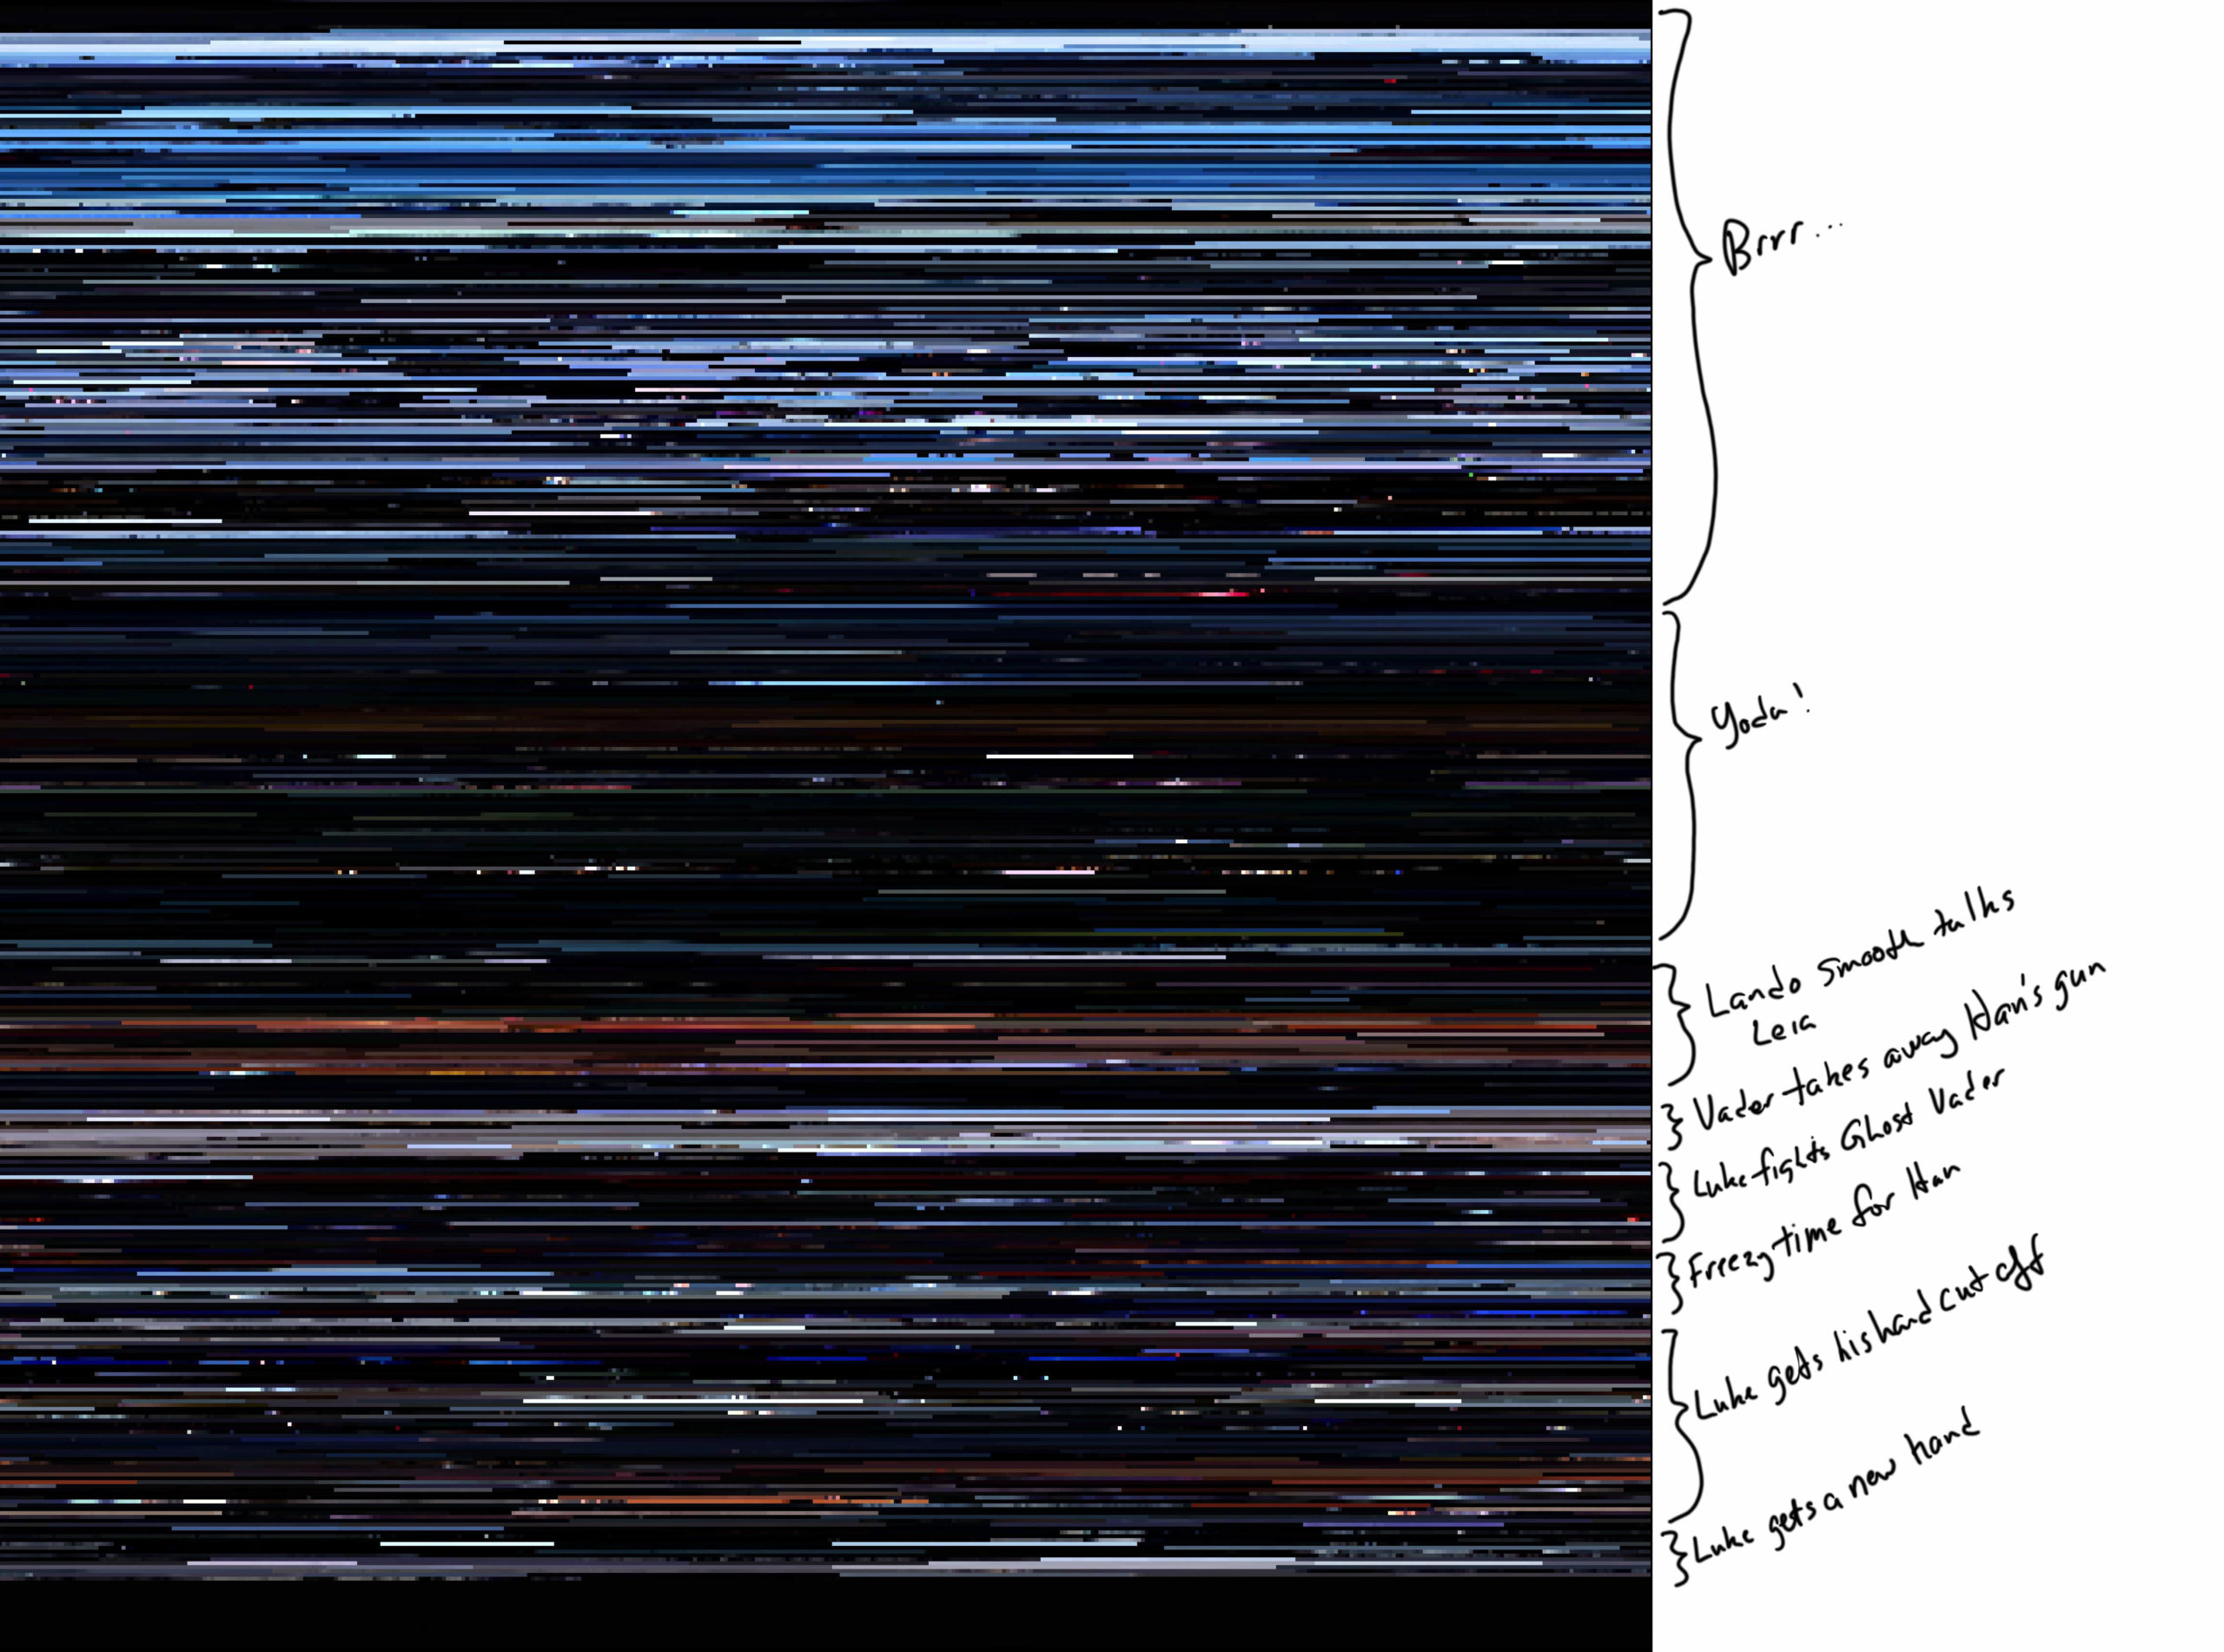 Brrr...
Yoda!
Lando smooth talks
Leia
Vader takes away Han's gun
Luke fights Ghost Vader
Freezy time for Han
Luke gets his hand cut off
Luke gets a new hand